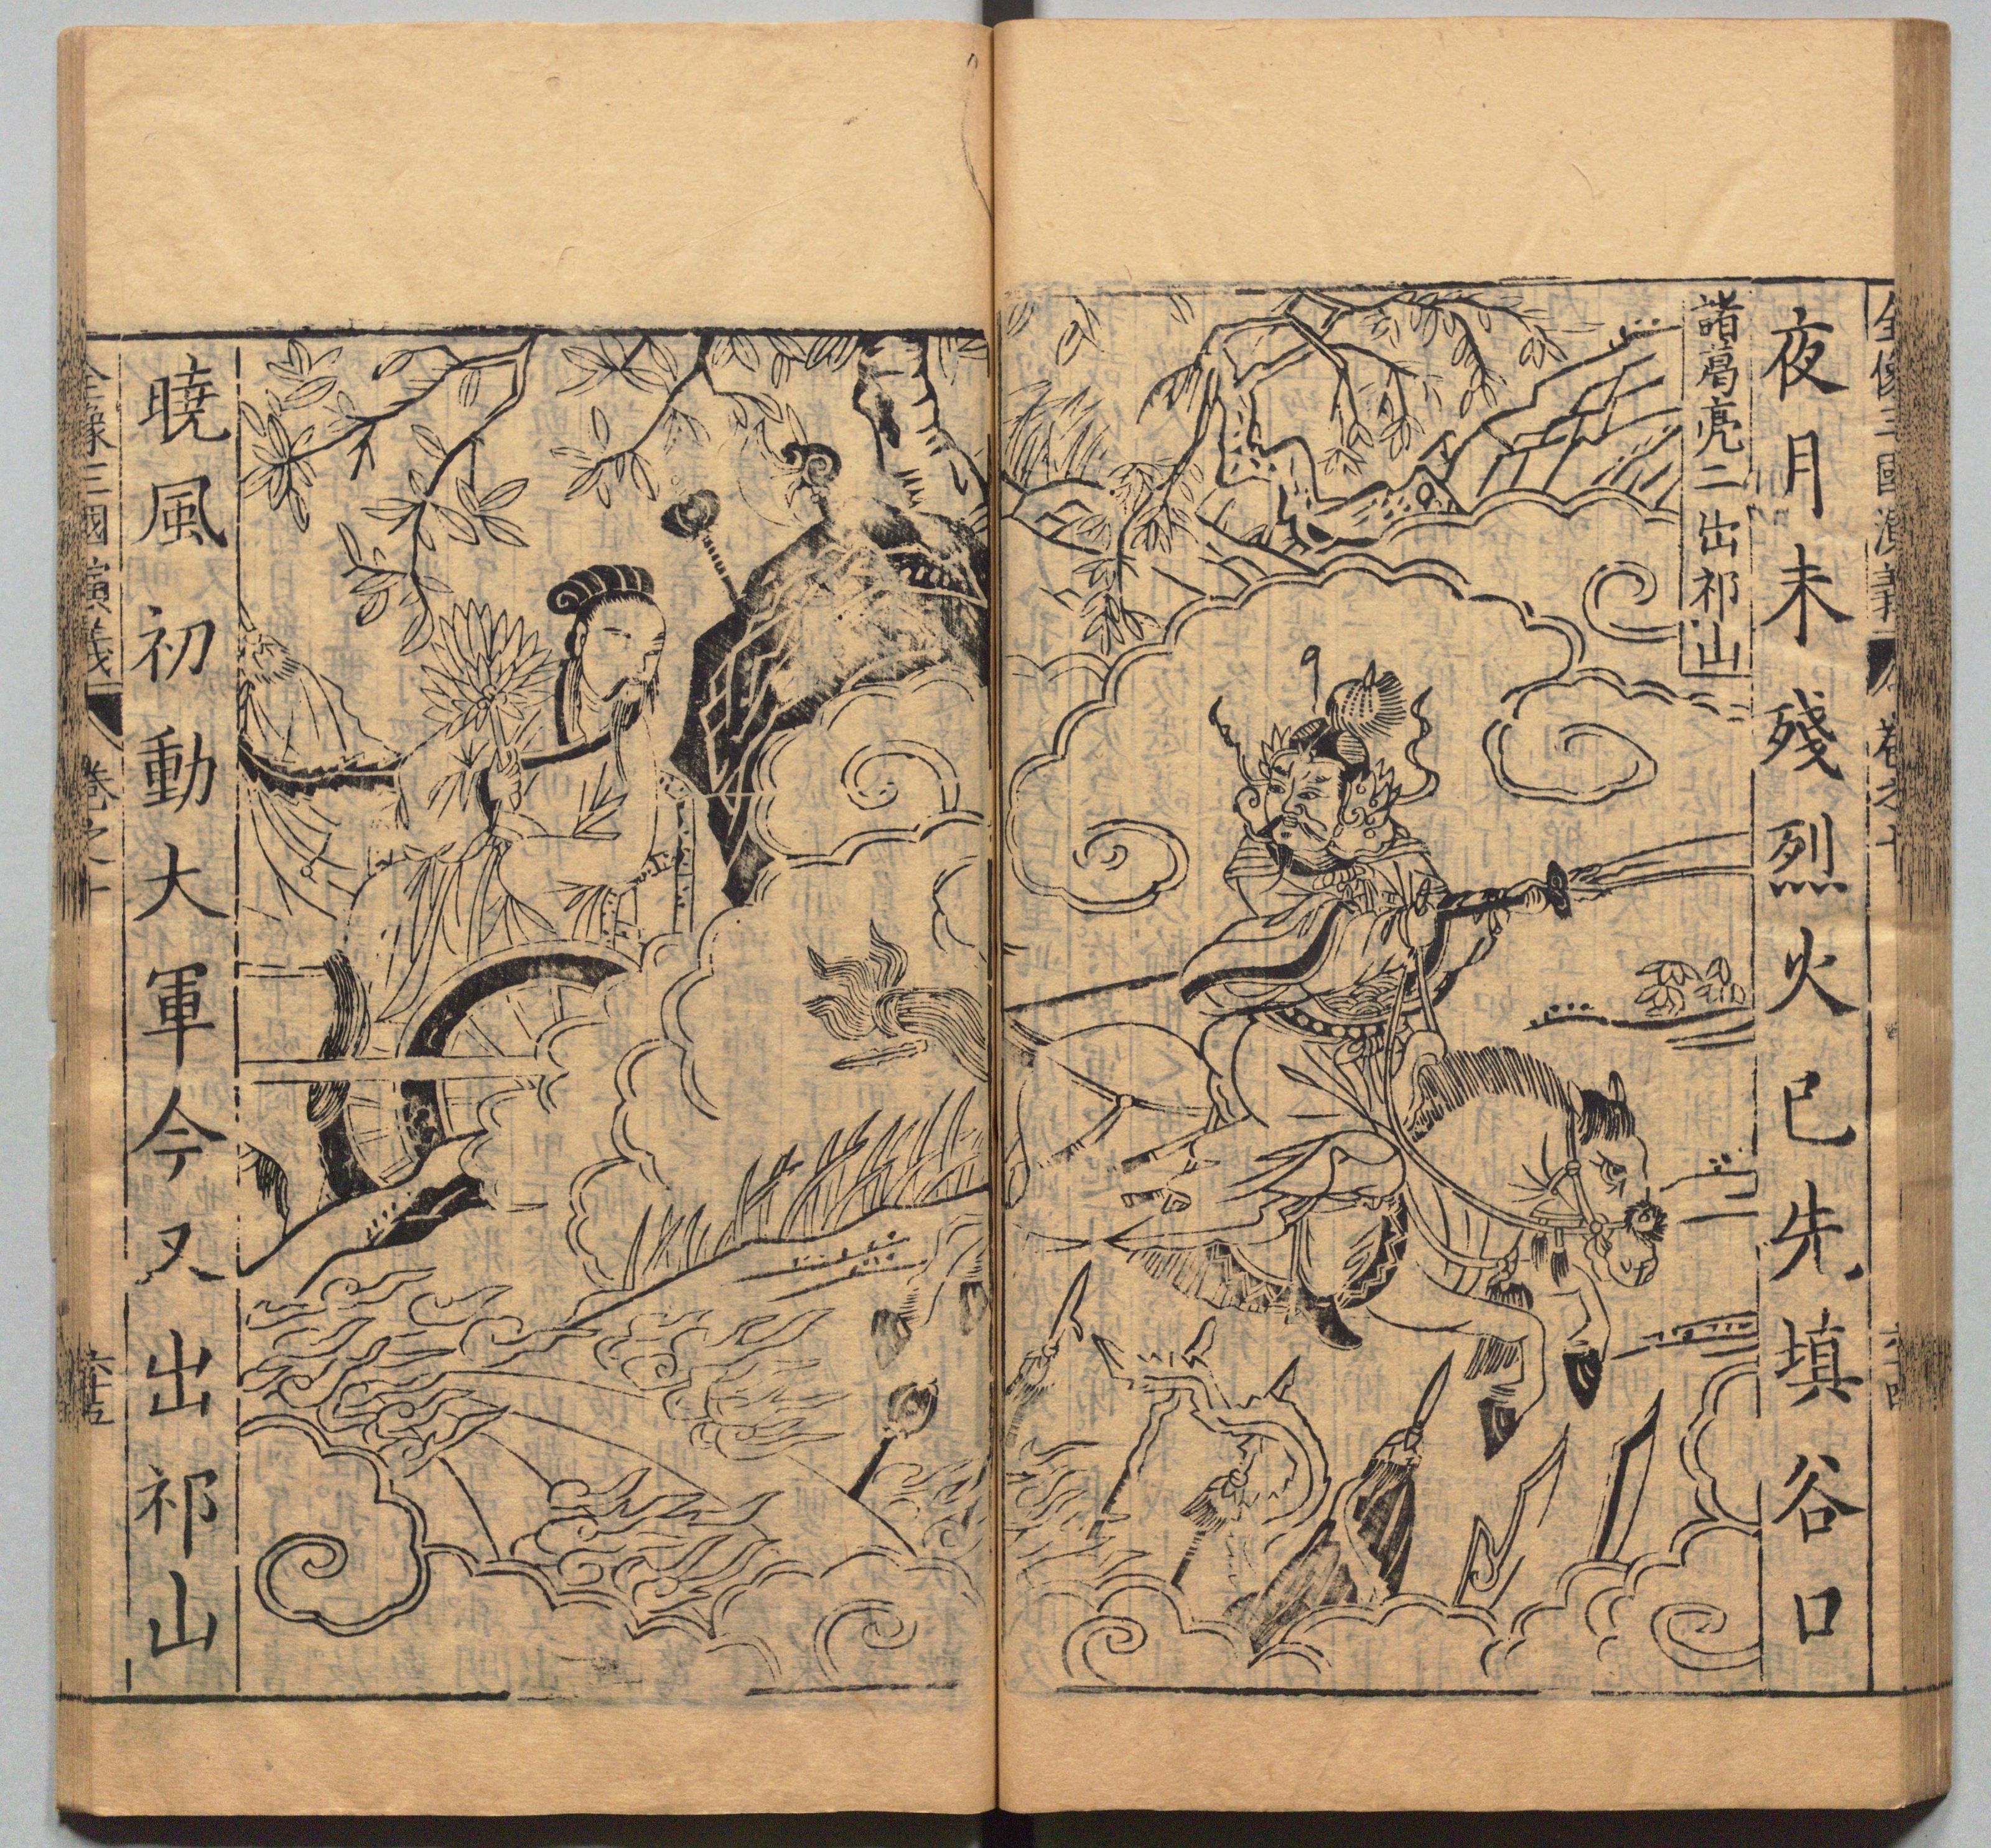 全像三國演義
卷之十
夜月未殘烈火已先填谷口
諸葛亮二出祁山
曉風初動大軍今又出祁山
全像三國演義
卷之十